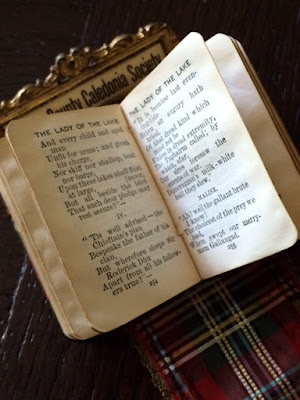 County Caledonia Society
THE LADY OF THE LAKE
And every child and aged
man
Unfit for arms; and given
his charge,
Nor skiff nor shallop, boat
nor barge,
Upon these lakes shall float
at large,
But all beside the islet
moor,
That such dear pledge may
rest secure."—
IV.
"'Tis well advised — the
Chieftain's plan
Bespeaks the father of his
clan,
But wherefore sleeps Sir
Roderick Dhu
Apart from all his follow-
ers true?"—
254
THE LADY OF THE LAKE
"It is because last even-
ing-tide
an augury hath
Of that dread kind which
must not be
in dread extremity,
Taghairm called; by
which, afar,
Our sires foresaw the
of war.
Duncraggan's milk-white
bull they slew."
MALISE.
"Ah! well the gallant brute
I knew!
The choicest of the prey we
had,
When swept our merry-
men Gallangad.
255